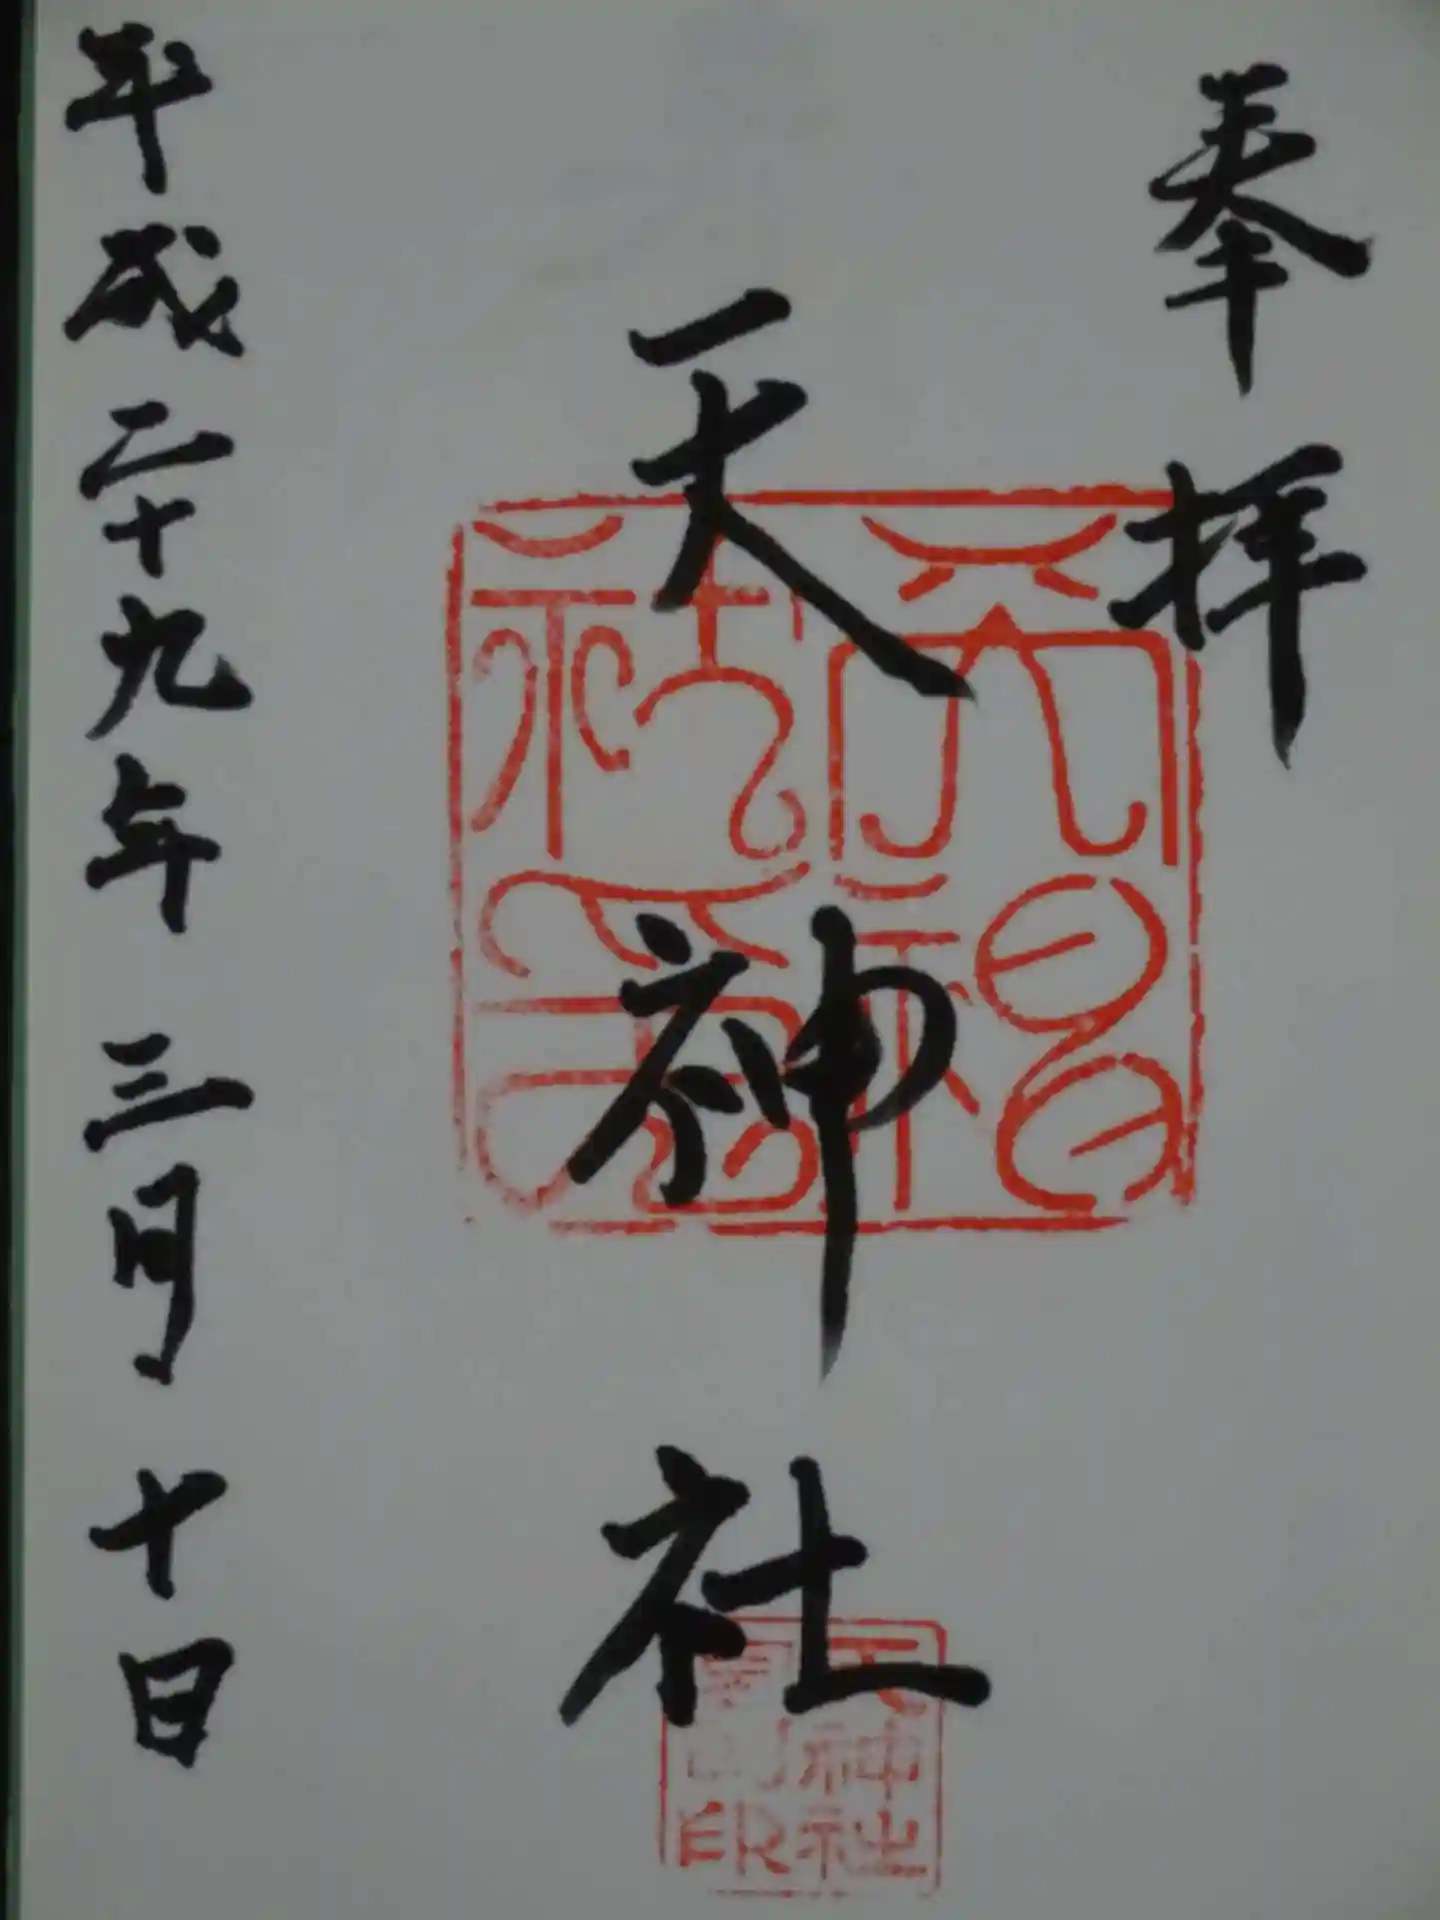 奉拝
天神社
平成二十九年三月十日
天神社